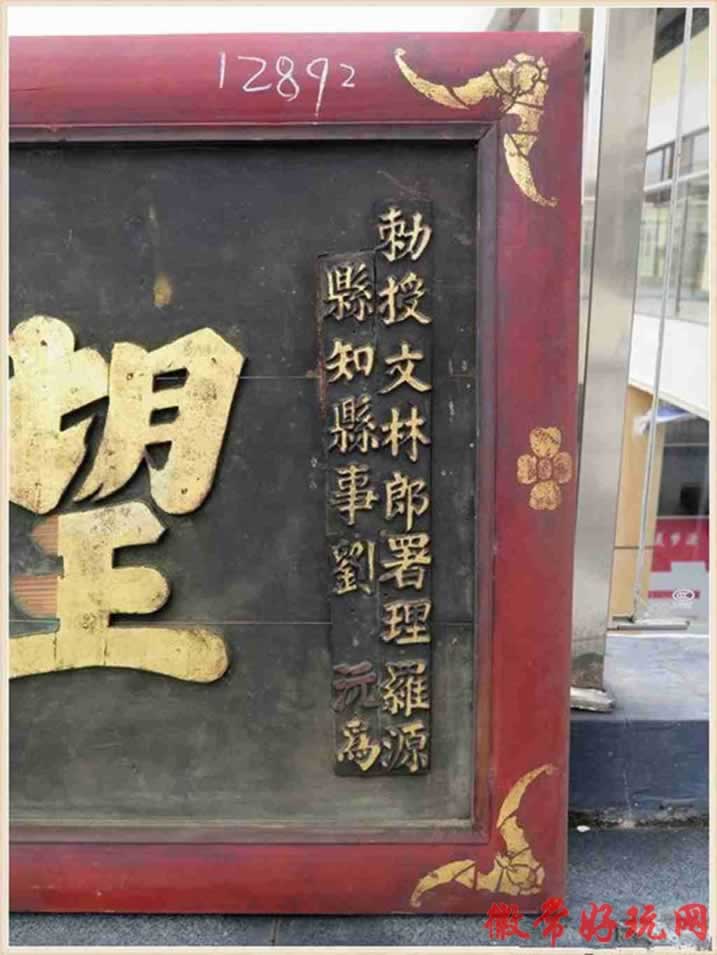 12892
勅授文林郎署理羅源
縣知縣事劉沅為
望
徽常好玩网